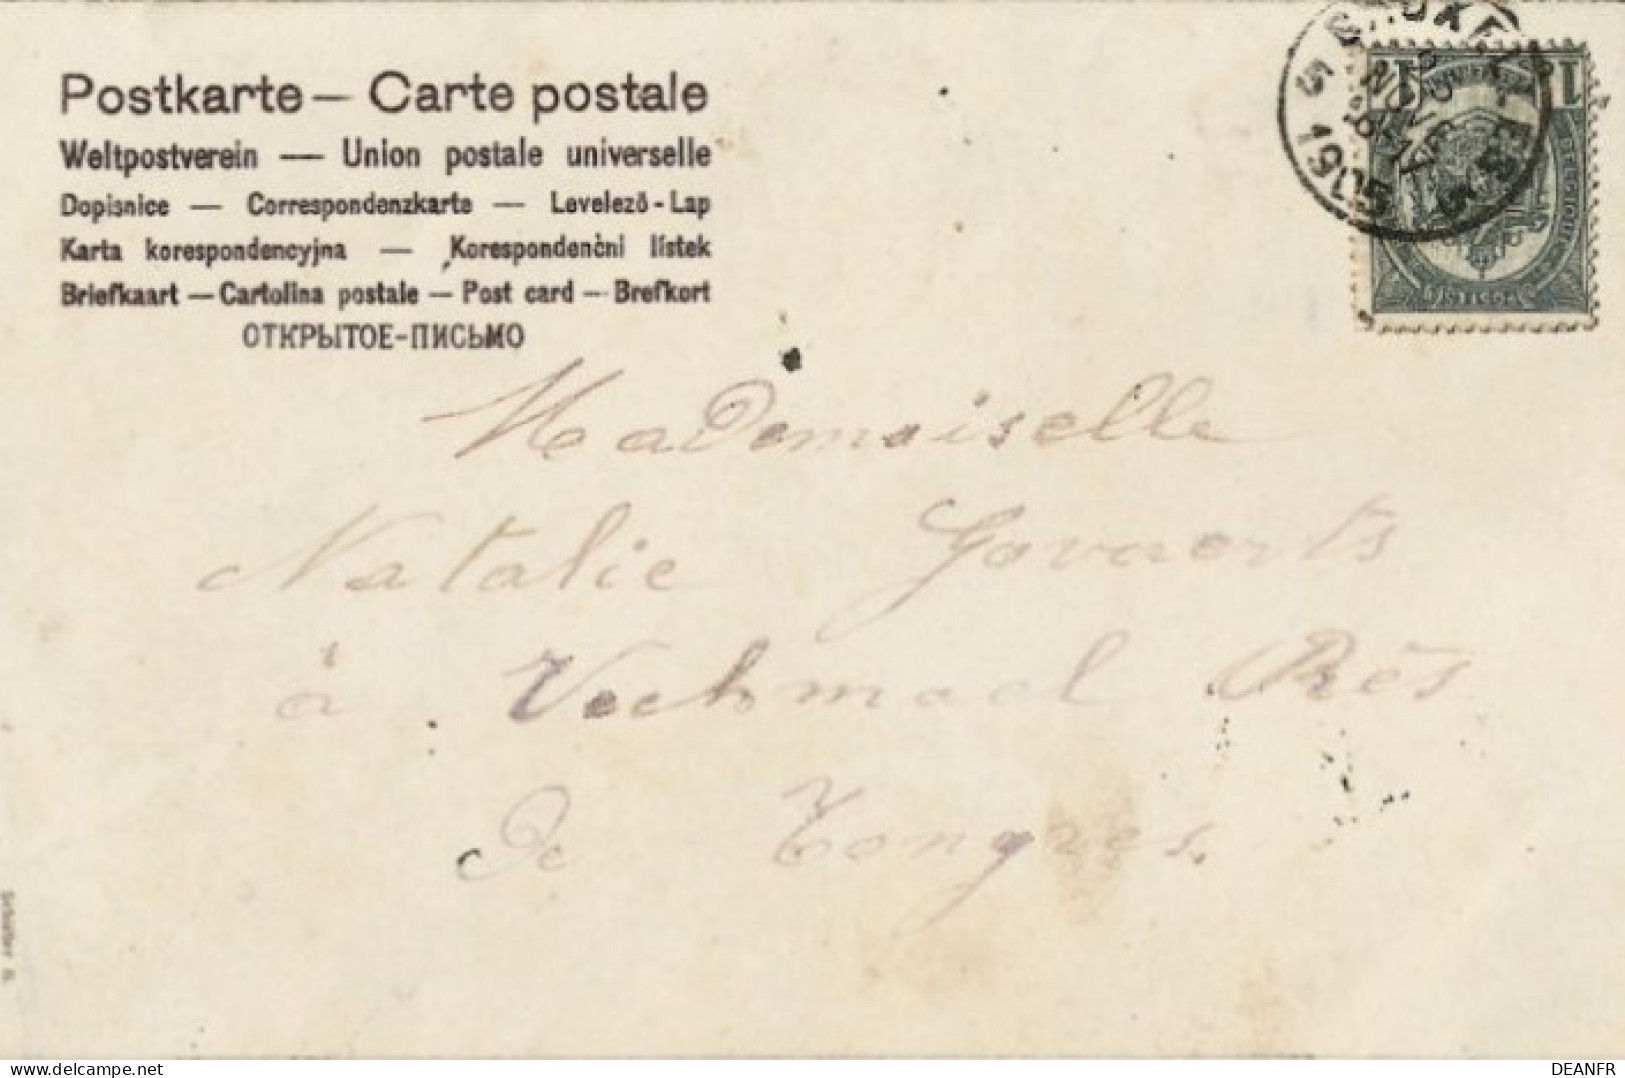 Postkarte — Carte postale
Weltpostverein — Union postale universelle
Dopisnice — Correspondenzkarte — Levelező-Lap
Karta korespondencyjna — Korespondenčni lístek
Briefkaart — Cartolina postale — Post card — Brefkort
ОТКРЫТОЕ-ПИСЬМО
1905
1 1
BELGIQUE
MadDemoiselle
Natalie Govaerts
à Vechmael Rès
De Tongres
DEANFR